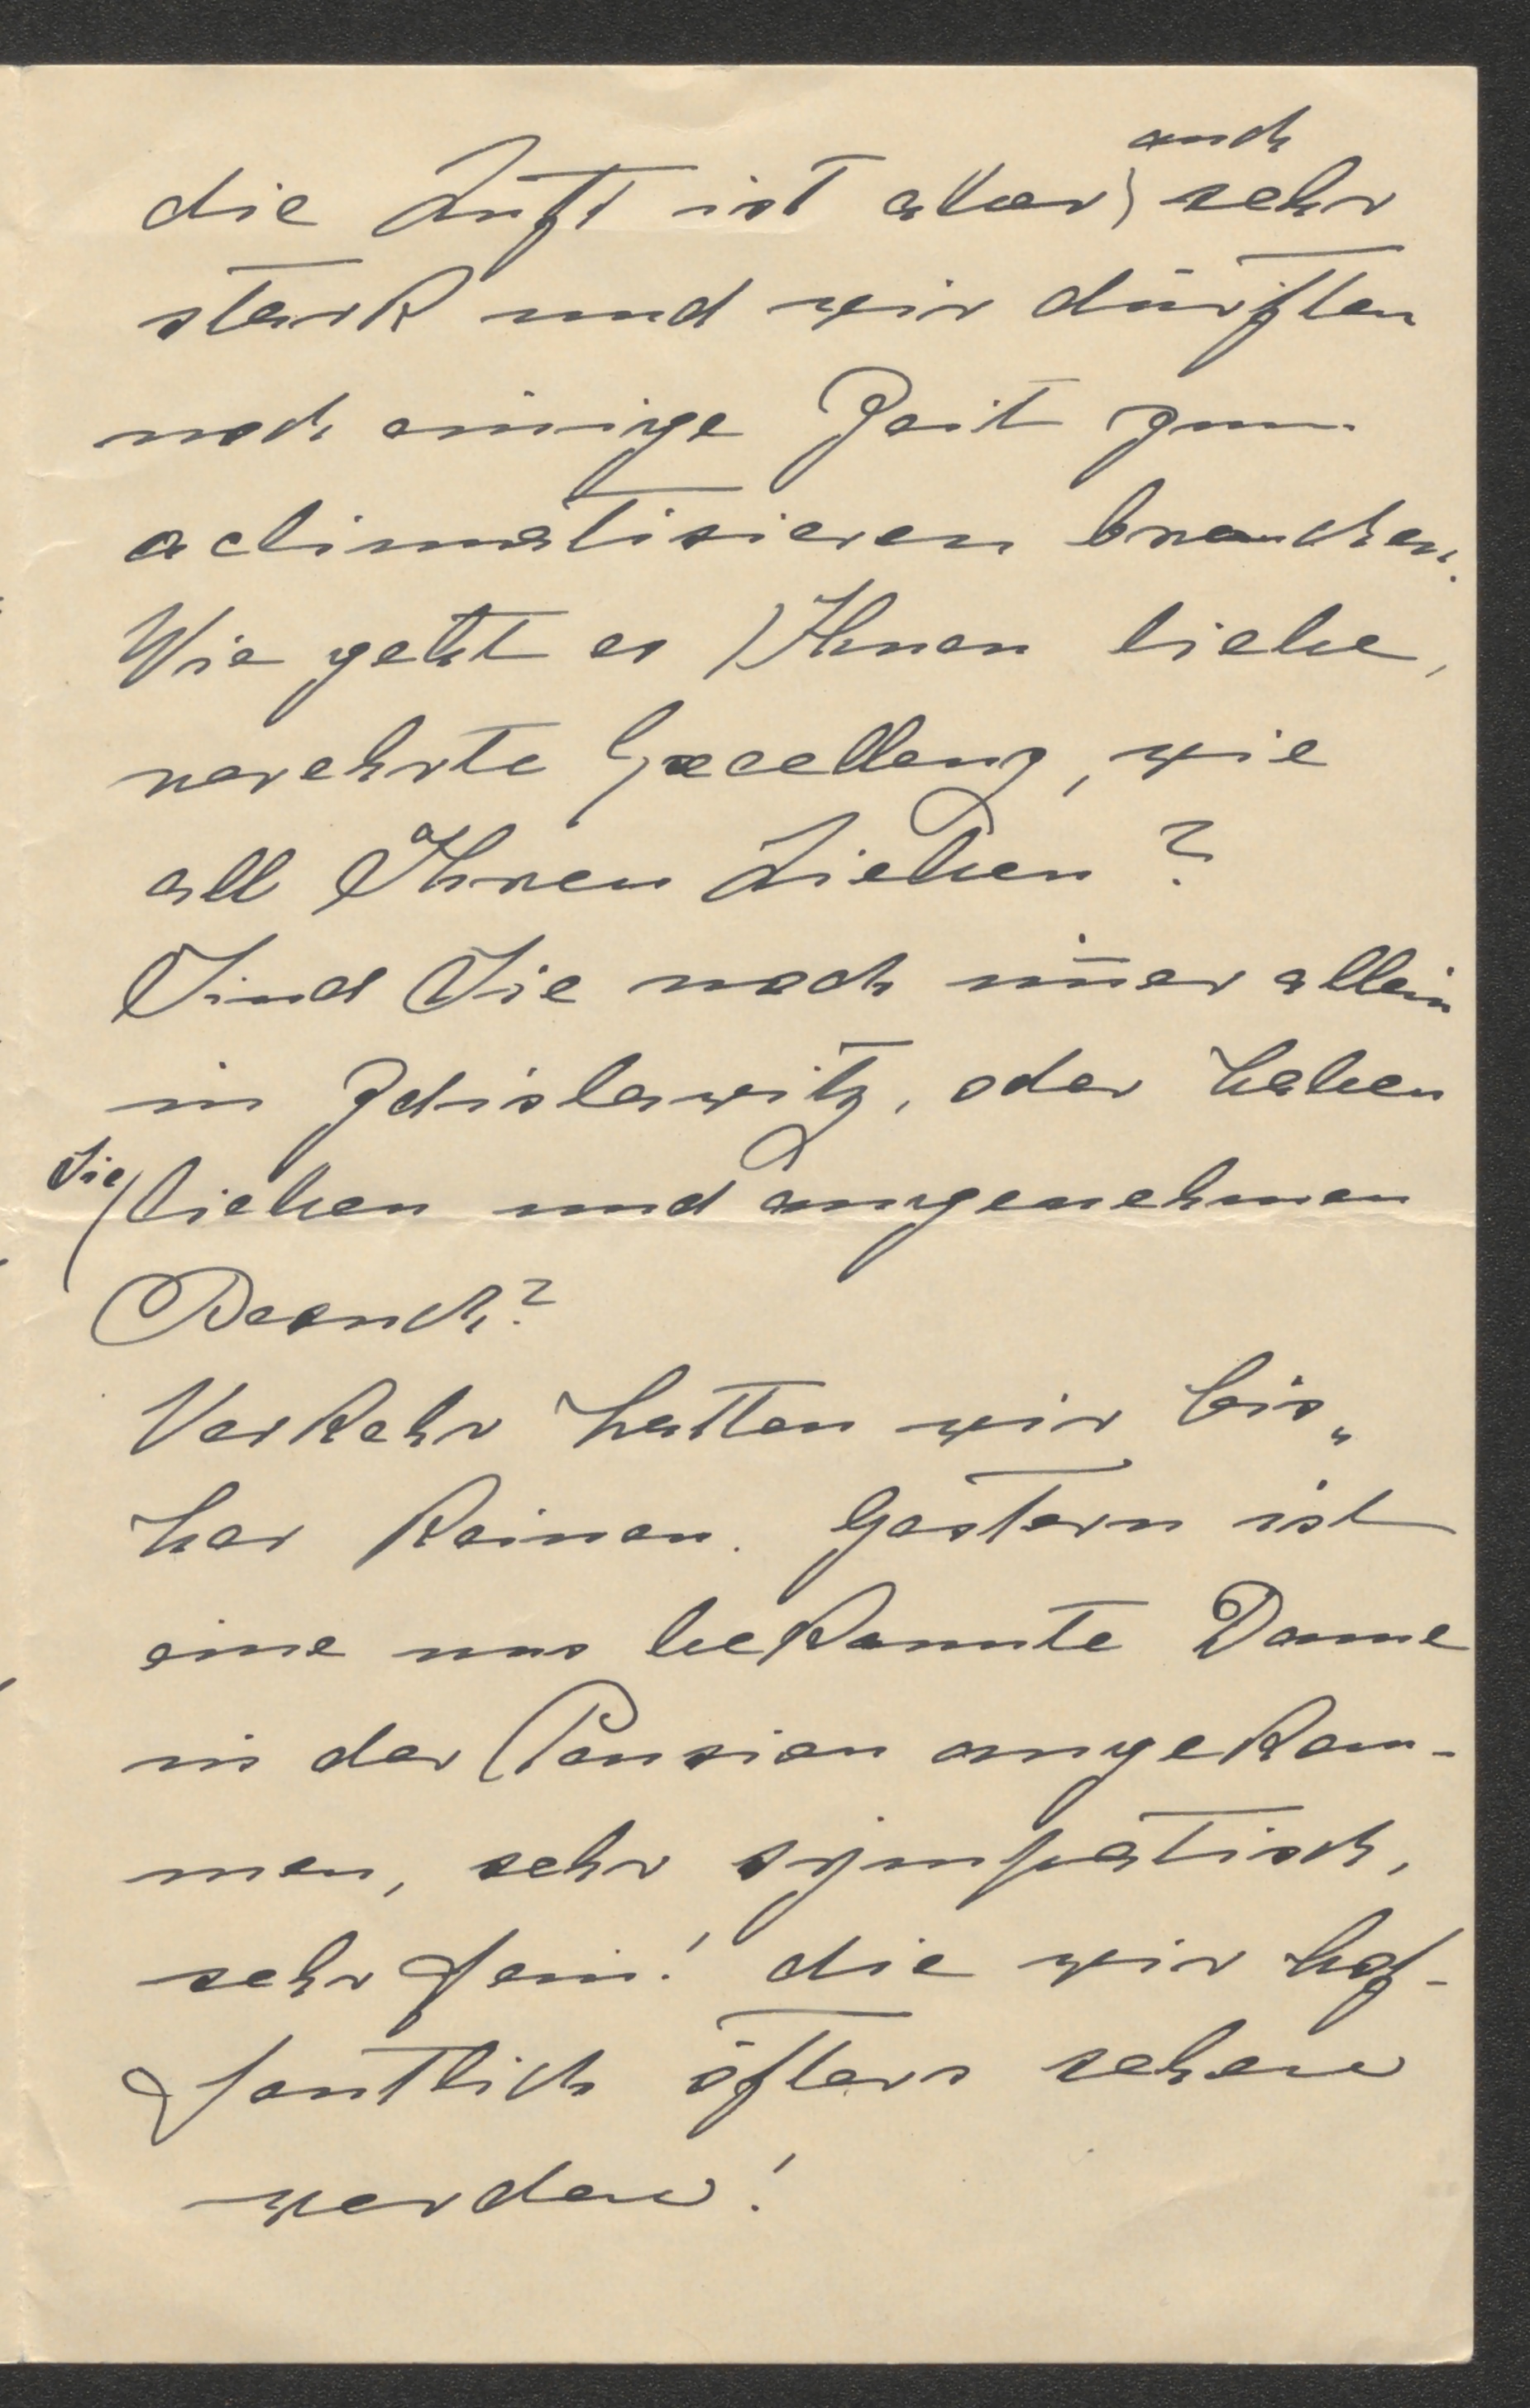 auch
die Luft ist aber sehr
stark und wir dürften
noch einige Zeit zum
aclimatisieren brauchen.
Wie geht es Ihnen liebe,
verehrte Excellenz, wie
all Ihren Lieben?
Sind Sie noch im̄er allein
in Zdislawitz, oder haben
Sie
lieben und angenehmen
Besuch?
Verkehr hatten wir bis„
her keinen. Gestern ist
eine uns bekannte Dame
in der Pension angekom-
men, sehr sympatisch,
sehr fein! die wir hof-
fentlich öfters sehen
werden!